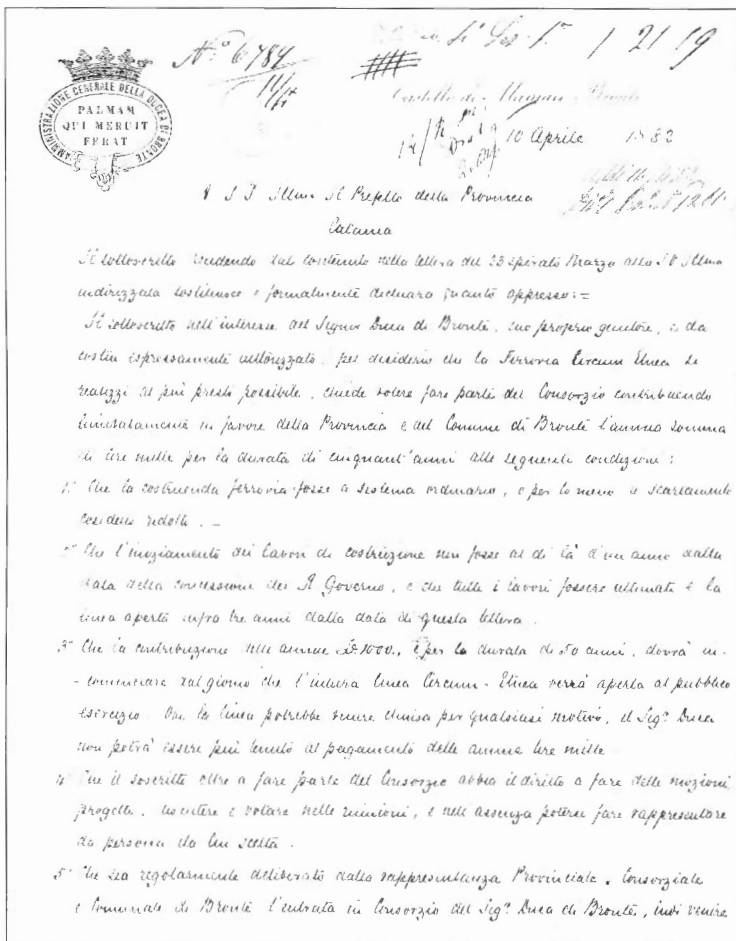 AMMINISTRAZIONE GENERALE DELLA DUCEA DI BRONTE
PALMAM
QUI MERUIT
FERAT
N.º 6784
1 21 19
Castello di Maniace - Bronte
10 Aprile 1882
A S. I. Illma Il Prefetto della Provincia
Catania
Il sottoscritto rendendo sul contenuto nella lettera del 23 spirato Marzo alla S V Illma
indirizzata sostituisce e formalmente dichiara quanto appresso:=
Il sottoscritto nell'interesse del Signor Duca di Bronte, suo proprio genitore, e da
costui espressamente autorizzato, pel desiderio che la Ferrovia Circum Etnea si
realizzi al più presto possibile, chiede volere fare parte del Consorzio contribuendo
in favore della Provincia e del Comune di Bronte l'annua somma
di lire mille per la durata di cinquant'anni alle seguenti condizioni:
1º Che la costruenda ferrovia fosse a sistema ordinario, e per lo meno a scartamento
cosidetto ridotto. -
2º Che l'iniziamento dei lavori di costruzione non fosse al di là d'un anno dalla
data della concessione del R Governo, e che tutti i lavori fossero ultimati e la
linea aperta infra tre anni dalla data di questa lettera.
3º Che la contribuzione delle annue L. 1000, per la durata di 50 anni, dovrà in-
-cominciare dal giorno che l'intiera linea Circum-Etnea verrà aperta al pubblico
esercizio. Ove la linea potrebbe venire chiusa per qualsiasi motivo, il Sigr Duca
non potrà essere più tenuto al pagamento delle annue lire mille
4º Che il soscritto oltre a fare parte del Consorzio abbia il diritto a fare delle mozioni
progetti, discutere e votare nelle riunioni, e nell'assenza potersi fare rappresentare
da persona da lui scelta.
5º Che sia regolarmente deliberato dalla rappresentanza Provinciale, Consorziale
e Comunale di Bronte l'entrata in Consorzio del Sigr Duca di Bronte, indi venire